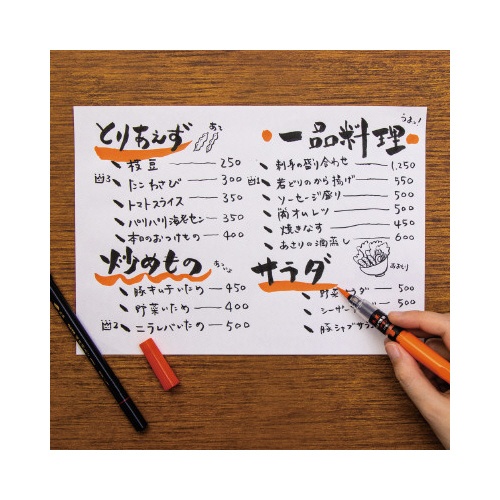 とりあえず
枝豆 250
たこわさび 300
トマトスライス 350
パリパリ海老セン 350
本日のおつけもの 400
炒めもの
豚キムチいため 450
野菜いため 400
ニラレバいため 500
一品料理
うまっ!
刺身の盛り合わせ 1,250
若どりのから揚げ 550
ソーセージ盛り 500
オムレツ 500
焼きなす 450
あさりの酒蒸し 600
サラダ
野菜サラダ 500
シーザー 500
豚シャブサラダ